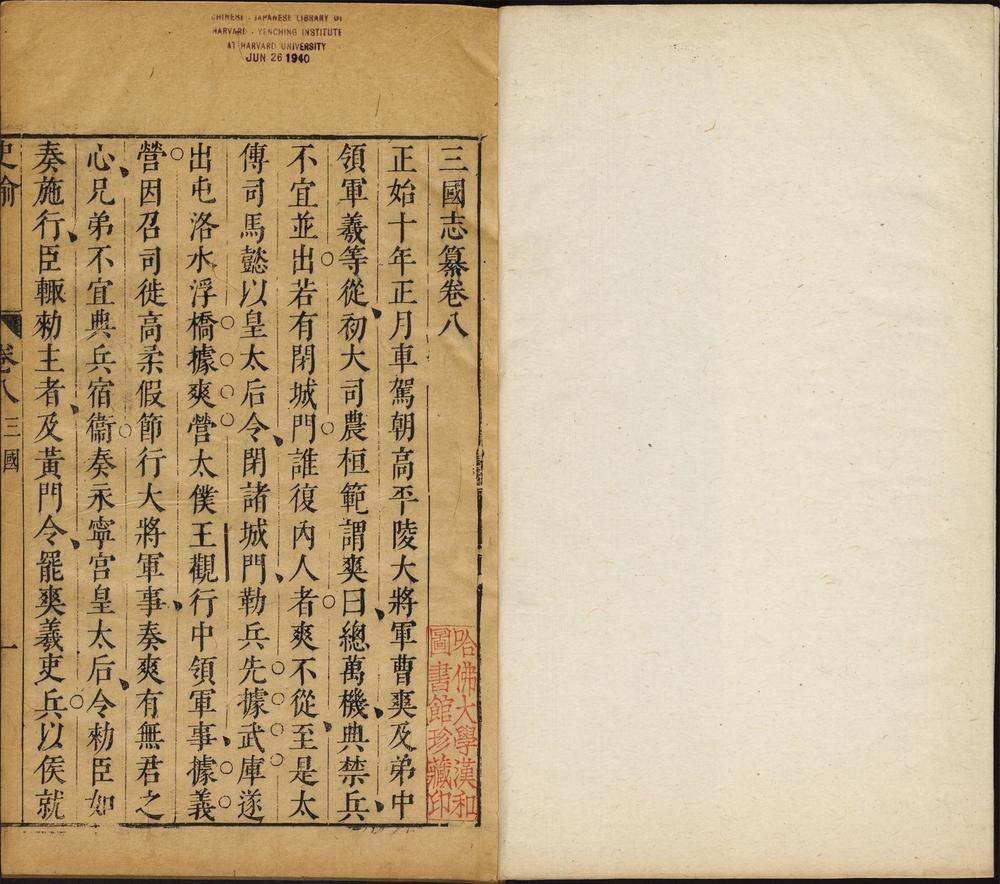 CHINESE - JAPANESE LIBRARY OF
HARVARD - YENCHING INSTITUTE
AT HARVARD UNIVERSITY
JUN 26 1940
三國志纂卷八
正始十年正月車駕朝高平陵大將軍曹爽及弟中
領軍羲等從初大司農桓範謂爽曰總萬機典禁兵
不宜並出若有閉城門誰復內人者爽不從至是太
傅司馬懿以皇太后令閉諸城門勒兵先據武庫遂
出屯洛水浮橋據爽營太僕王觀行中領軍事據義
營因召司徒高柔假節行大將軍事奏爽有無君之
心兄弟不宜典兵宿衞奏永寧宮皇太后令勑臣如
奏施行臣輙勑主者及黃門令罷爽羲吏兵以侯就
史
卷八
三國
一
哈佛大學漢和
圖書館珍藏印